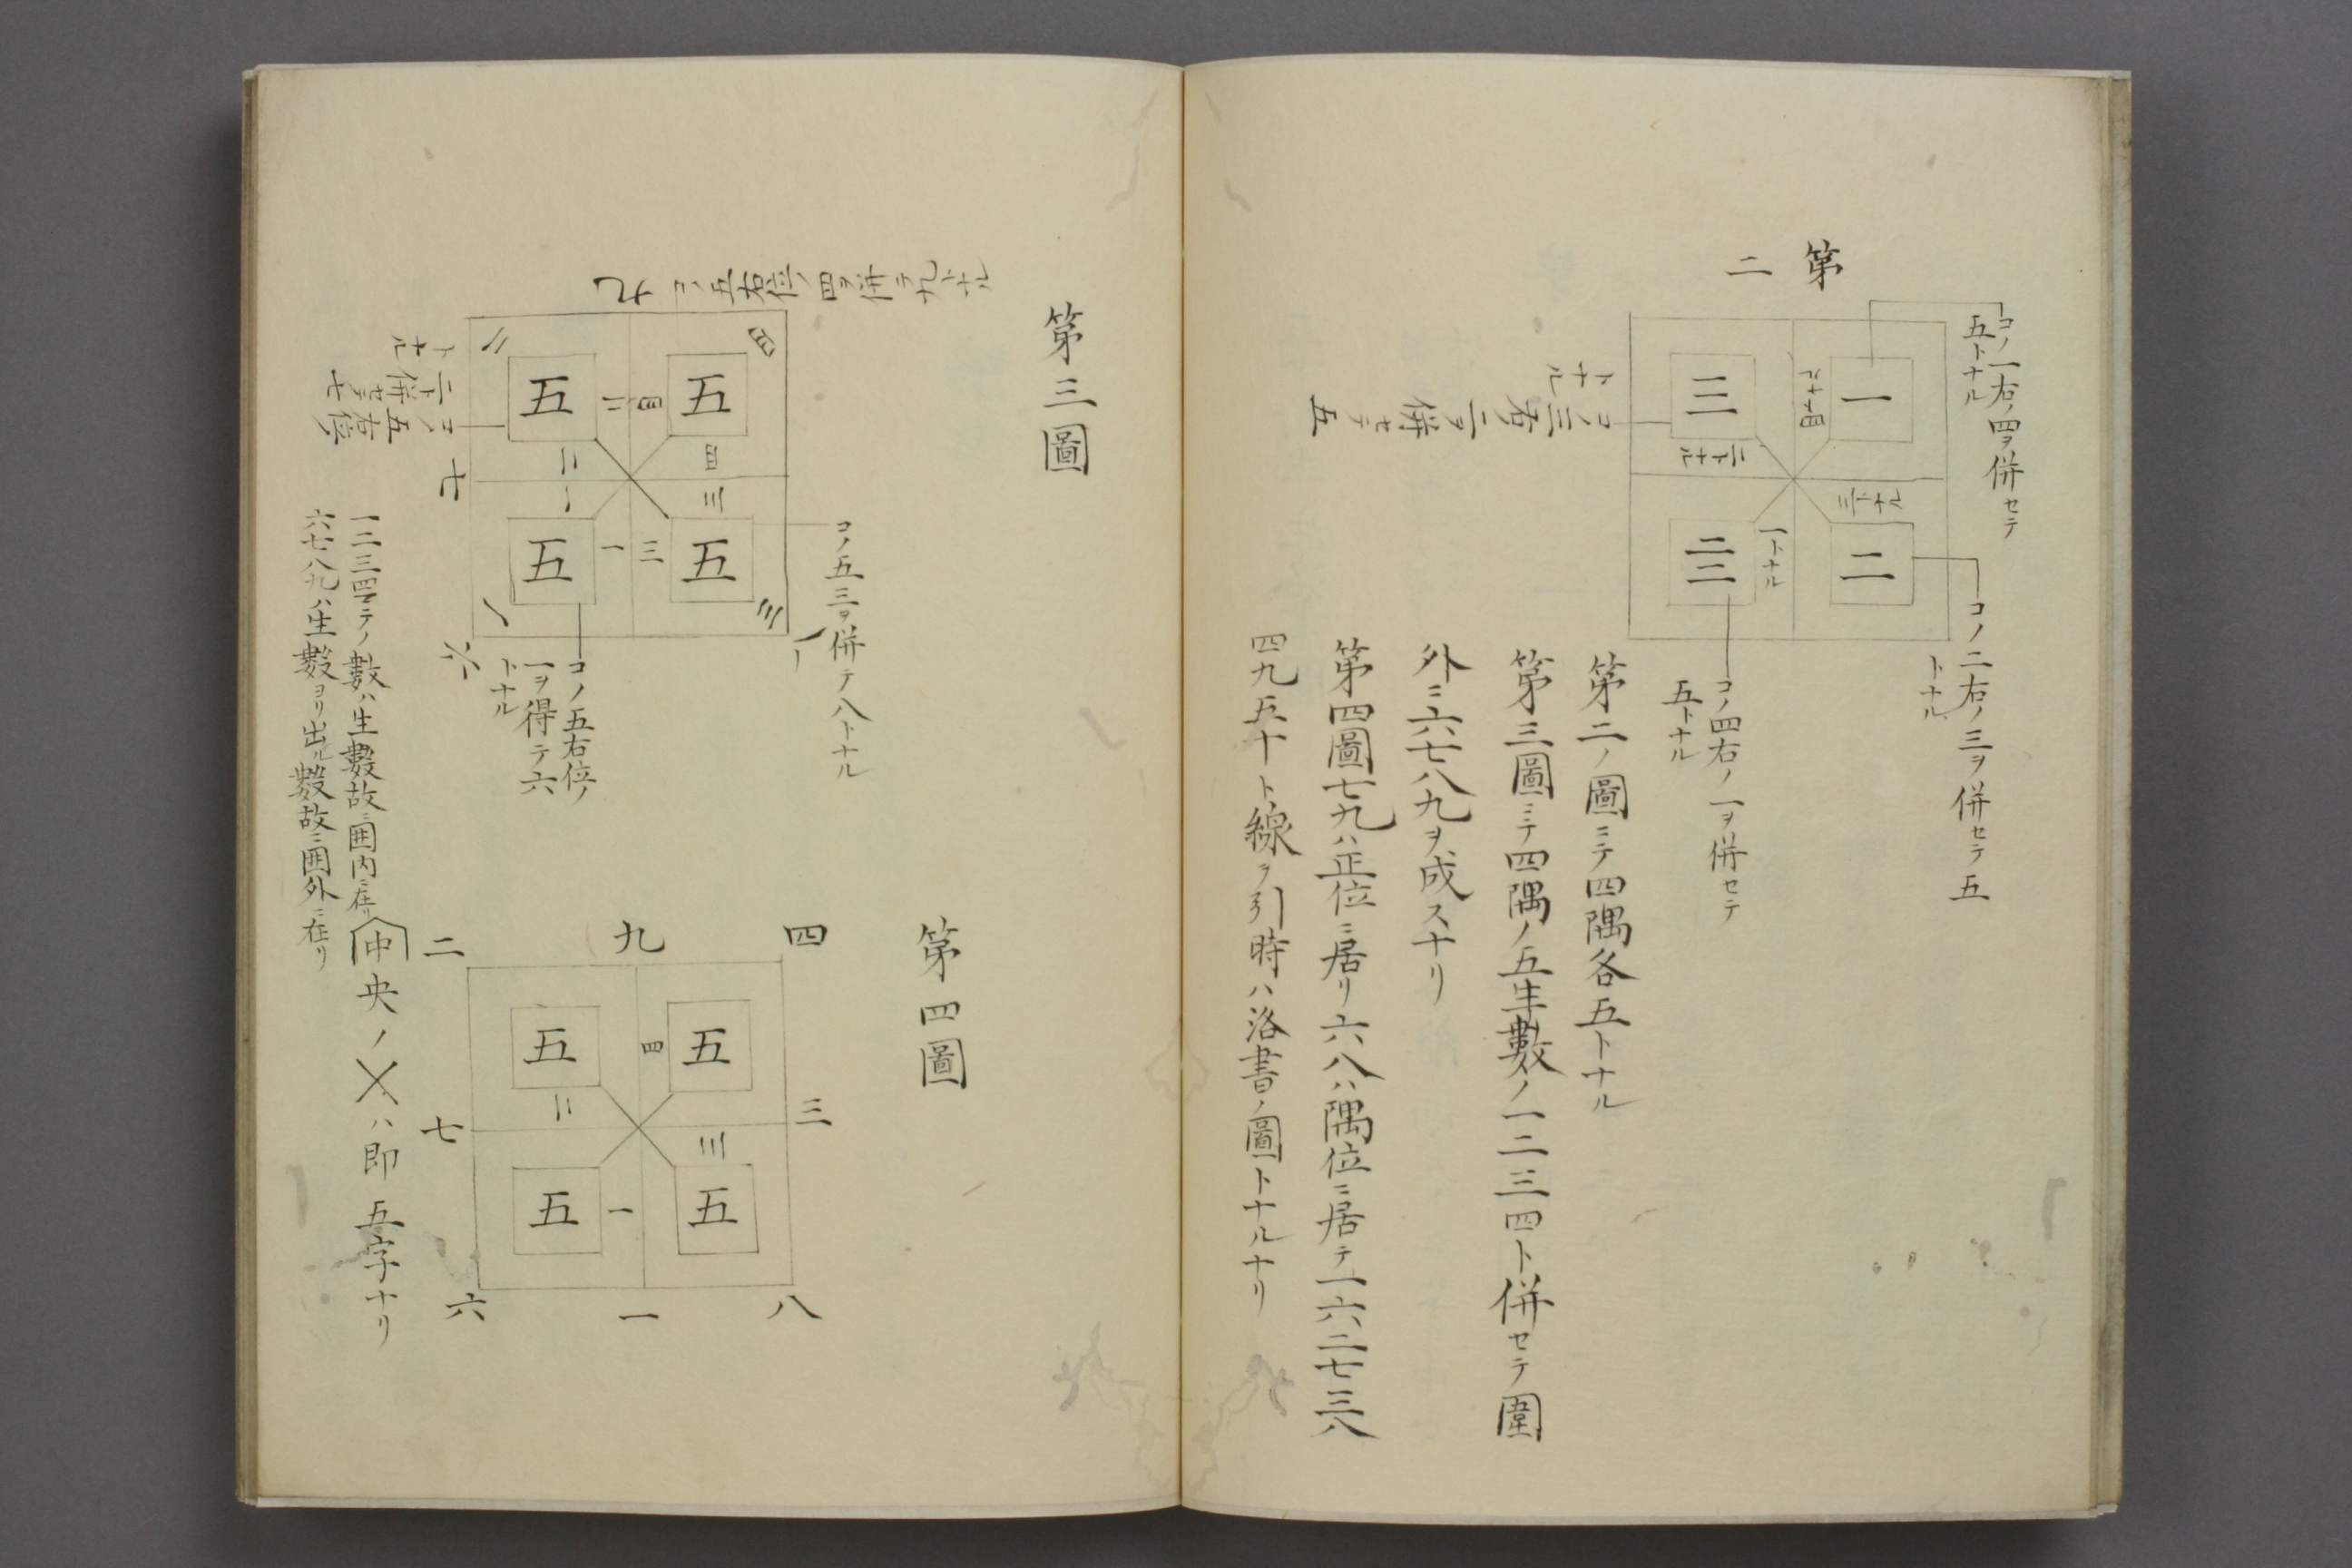 第二
コノ一右ノ四ヲ併セテ
五トナル
一
四トナル
三
三トナル
二トナル
二
二三
一トナル
コノ三右二ヲ併セテ五
トナル
コノ二右ノ三ヲ併セテ五
トナル
コノ四右ノ一ヲ併セテ
五トナル
第二ノ圖ニテ四隅各五トナル
第三圖ニテ四隅ノ五生數ノ一二三四ト併セテ圍
外ニ六七八九ヲ成スナリ
第四圖七九ハ正位ニ居リ六八ハ隅位ニ居テ一六二七三八
四九五十ト線ヲ引時ハ洛書ノ圖トナルナリ
第三圖
九
コノ五右位ノ四ヲ併テ九トナル
四
五
四
四
二
五
二
二
三
五
三
三
一
五
一
一
コノ五右位
二ト併セテ七
トナル
七
八
コノ五三ヲ併テ八トナル
六
コノ五右位ノ
一ヲ得テ六
トナル
第四圖
四
九
二
三
七
八
一
六
五
四
五
二
五
三
五
一
一二三四マテノ數ハ生數故ニ囲内ニ在リ
六七八九ハ生數ヨリ出ル數故ニ囲外ニ在リ
中央ノ㐅ハ即五字ナリ